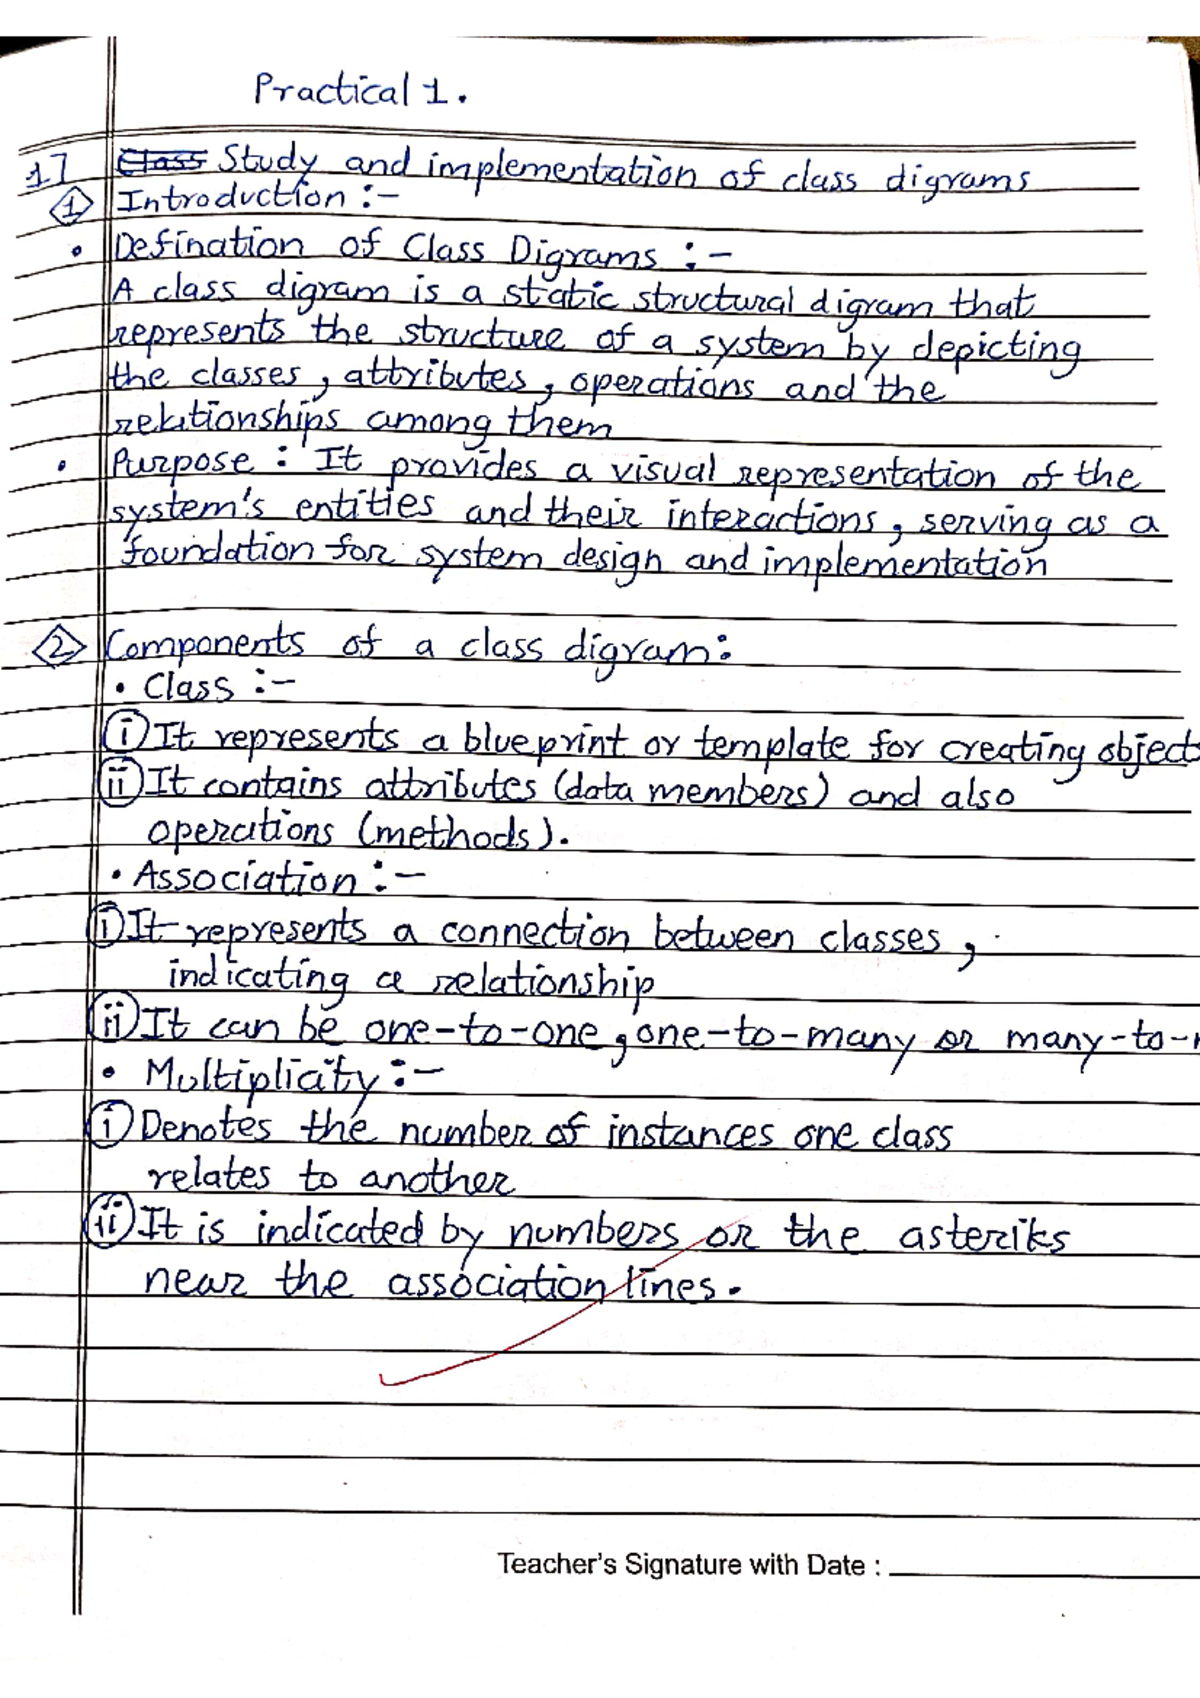 Practical 1.
1] Class Study and implementation of class digrams
1 Introduction :-
• Defination of Class Digrams :-
A class digram is a static structural digram that
represents the structure of a system by depicting
the classes, attributes, operations and the
relationships among them
• Purpose : It provides a visual representation of the
system's entities and their interactions, serving as a
foundation for system design and implementation
2 Components of a class digram:
• Class :-
i It represents a blueprint or template for creating objects
ii It contains attributes (data members) and also
operations (methods).
• Association :-
i It represents a connection between classes,
indicating a relationship
ii It can be one-to-one, one-to-many or many-to-
• Multiplicity :-
i Denotes the number of instances one class
relates to another
ii It is indicated by numbers or the asteriks
near the association lines.
Teacher's Signature with Date :